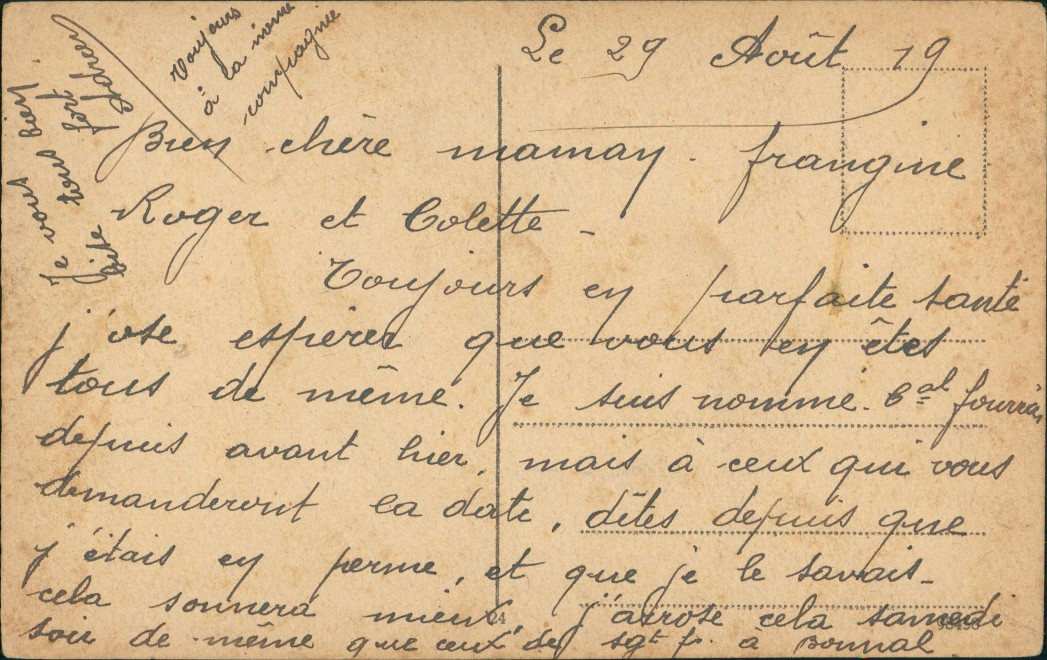 Le 29 Août 19
Bien chère maman. frangine
Roger et Colette -
Toujours en parfaite santé
j'ose espérer que vous en êtes
tous de même. Je suis nommé. Cal fourrier
depuis avant hier, mais à ceux qui vous
demanderont la date, dîtes depuis que
j'étais en perme, et que je le savais -
cela sonnera mieux, j'arrose cela samedi
soir de même que ceux de sgt fr. à Bonnal
Je vous
bise tous bien
fort
Toujours
à la même
compagnie
24